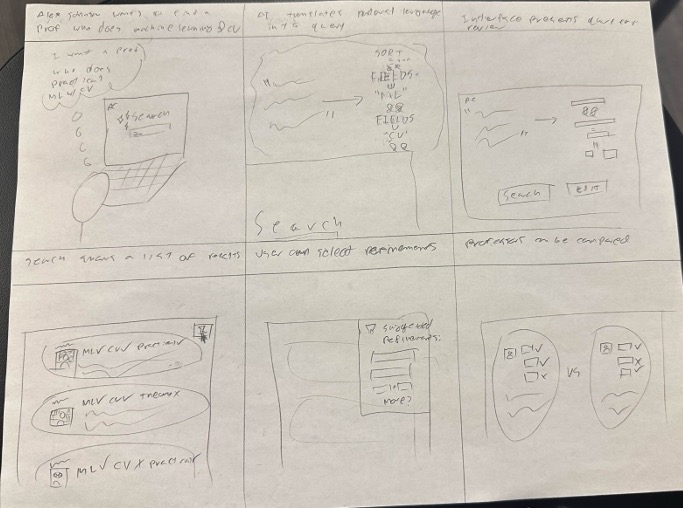 Alex wants to find a
Prof who does machine learning & CV
I want a Prof
who does
practical
ML/CV
Search
AI translates natural language
into query
SORT
FIELDS
"ML"
&&
FIELDS
"CV"
Search
Interface presents query for
review
Search
EDIT
Search gives a list of results
MLV CVV practical
MLV CVV
MLV CVX practical
User can select refinements
suggested
refinements:
more?
Professors can be compared
VS